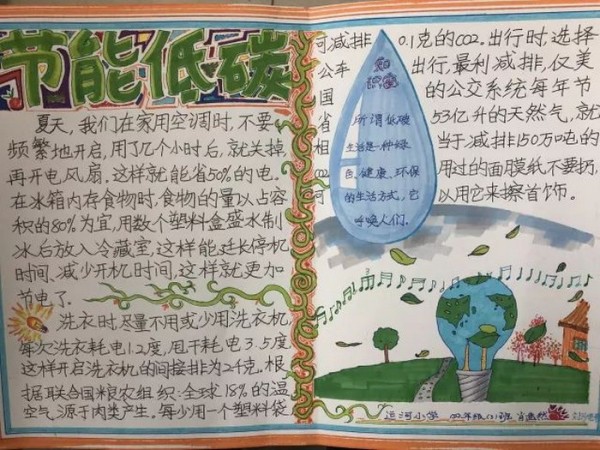 节能低碳
夏天，我们在家用空调时，不要
频繁地开启，用了几个小时后，就关掉
再开电风扇。这样就能省50%的电。
在冰箱内存食物时，食物的量以占容
积的80%为宜，用数个塑料盒盛水制
冰后放入冷藏室，这样能延长停机
时间、减少开机时间，这样就更加
节电了。
洗衣时，尽量不用或少用洗衣机，
每次洗衣耗电1.2度，甩干耗3.5度
这样开启洗衣机的间接排为2千克。根
据联合国粮农组织：全球18%的温
空气，源于肉类产生，每少用一个塑料袋
可减排 0.1克的CO2。出行时，选择
公车 出行，最利减排，仅美
国 的公交系统每年节
省 53亿升的天然气，就
相 当于减排150万吨的
CO2 用过的面膜纸不要扔，
可 以用它来擦首饰。
知
识窗
所谓低碳
生活是一种绿
色、健康、环保
的生活方式，它
呼唤人们。
运河小学 四年级(1)班 肖逸然